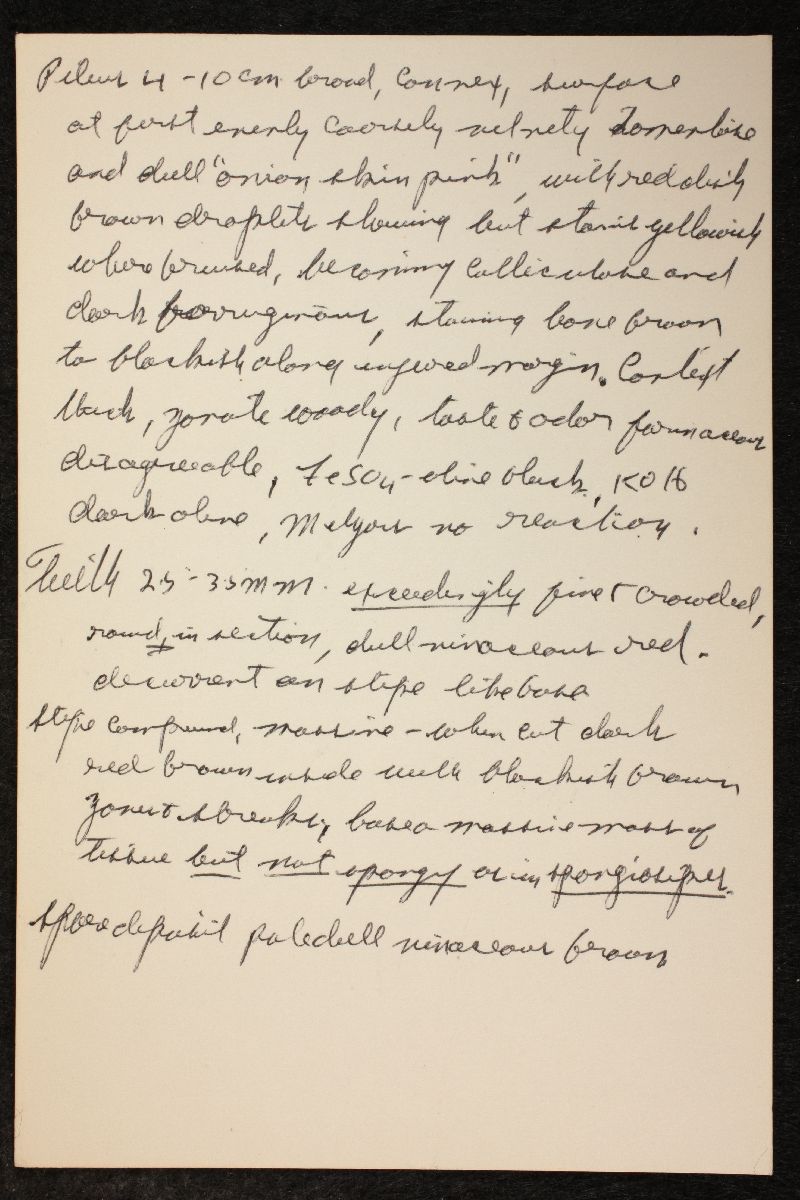 Pileus 4-10 cm broad, convex, surface
at first evenly coarsely velvety tomentose
and dull "onion skin pink", with reddish
brown droplets showing but stains yellowish
where bruised, becoming colliculose and
dark ferruginous, staining bone brown
to blackish along injured margin. Context
thick, zonate woody, taste & odor farinaceous
disagreeable, FeSO4-olive black, KOH
dark olive, Melzer no reaction.
Teeth 2.5-3.5 mm. exceedingly fine & crowded,
round ± in section, dull vinaceous red.
decurrent on stipe like base
Stipe compound, massive - when cut dark
red brown inside with blackish brown
zones & streaks, base a massive mass of
tissue but not spongy as in spongiosipes.
Spore deposit pale dull vinaceous brown